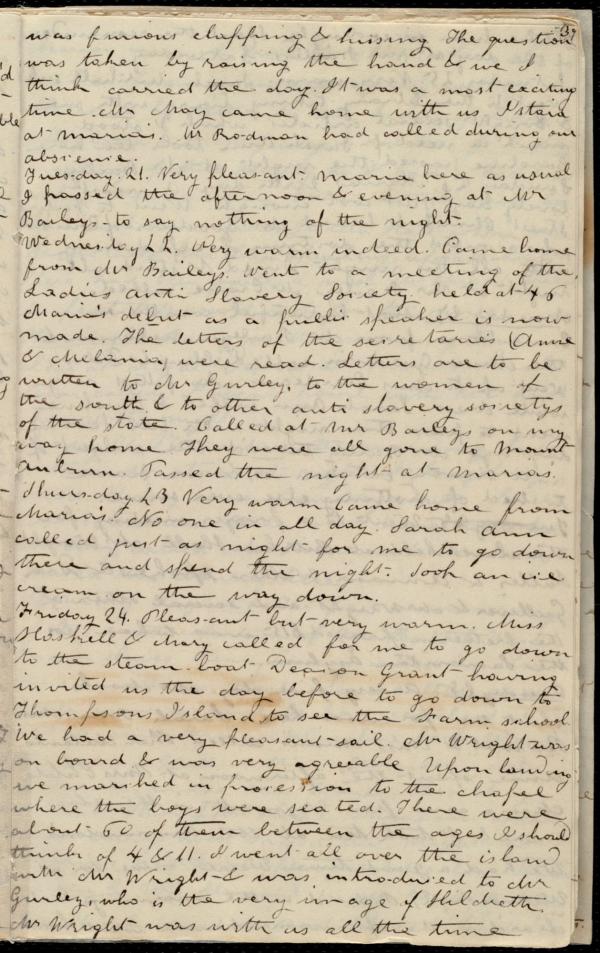 39
was furious clapping & hissing The question
was taken by raising the hand & we I
think carried the day. It was a most exciting
time. Mr May came home with us I staid
at marias. Mr Rodman had called during our
abscence.
Tuesday. 21. Very pleasant maria here as usual
I passed the afternoon & evening at Mr
Baileys - to say nothing of the night.
Wednesday 22. Very warm indeed. Came home
from Mr Baileys. Went to a meeting of the
Ladies anti Slavery Society held at 46
Maria's debut as a public speaker is now
made. The letters of the secretaries (Anne
& Melania, were read. Letters are to be
written to Mr Gurley, to the women of
the south & to other anti slavery societys
of the state. Called at Mr Baileys on my
way home They were all gone to Mount
Auburn. Passed the night at Marias.
Thursday 23 Very warm Came home from
Maria's. No one in all day. Sarah Ann
called just as night for me to go down
there and spend the night. Took an ice
cream on the way down.
Friday 24. Pleasant but very warm. Miss
Haskell & Mary called for me to go down
to the steam boat Deacon Grant having
invited us the day before to go down to
Thompsons Island to see the Farm school
We had a very pleasant sail. Mr Wright was
on board & was very agreeable Upon landing
we marched in procession to the chapel
where the boys were seated. There were
about 60 of them between the ages I should
think of 4 & 11. I went all over the island
with Mr Wright & was introduced to Mr
Gurley, who is the very image of Hildreth.
Mr Wright was with us all the time